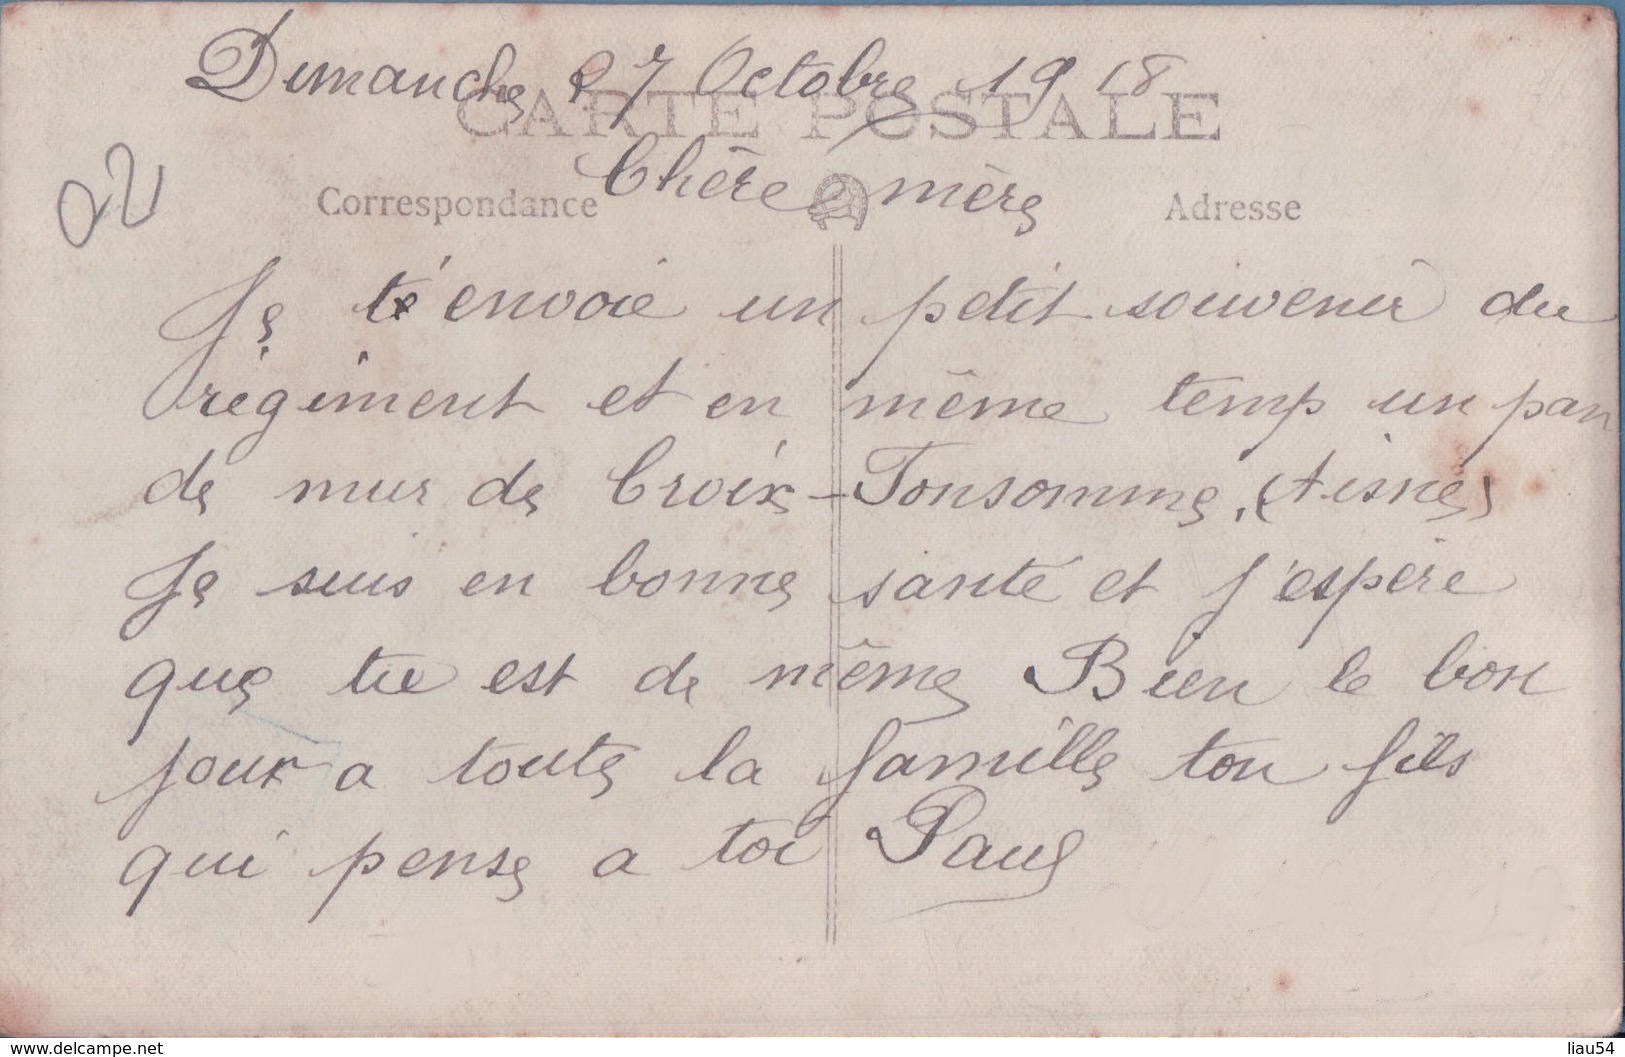 Dimanche 27 Octobre 1918
CARTE POSTALE
Chère mère
Correspondance
Adresse
02
Je t'envoie un petit souvenir du
régiment et en même temp un pan
de mur de Croix-Fonsomme, (Aisne)
Je suis en bonne santé et j'espère
que tu est de même Bien le bon
jour a toute la famille ton fils
qui pense a toi Paul
www.delcampe.net
liau54